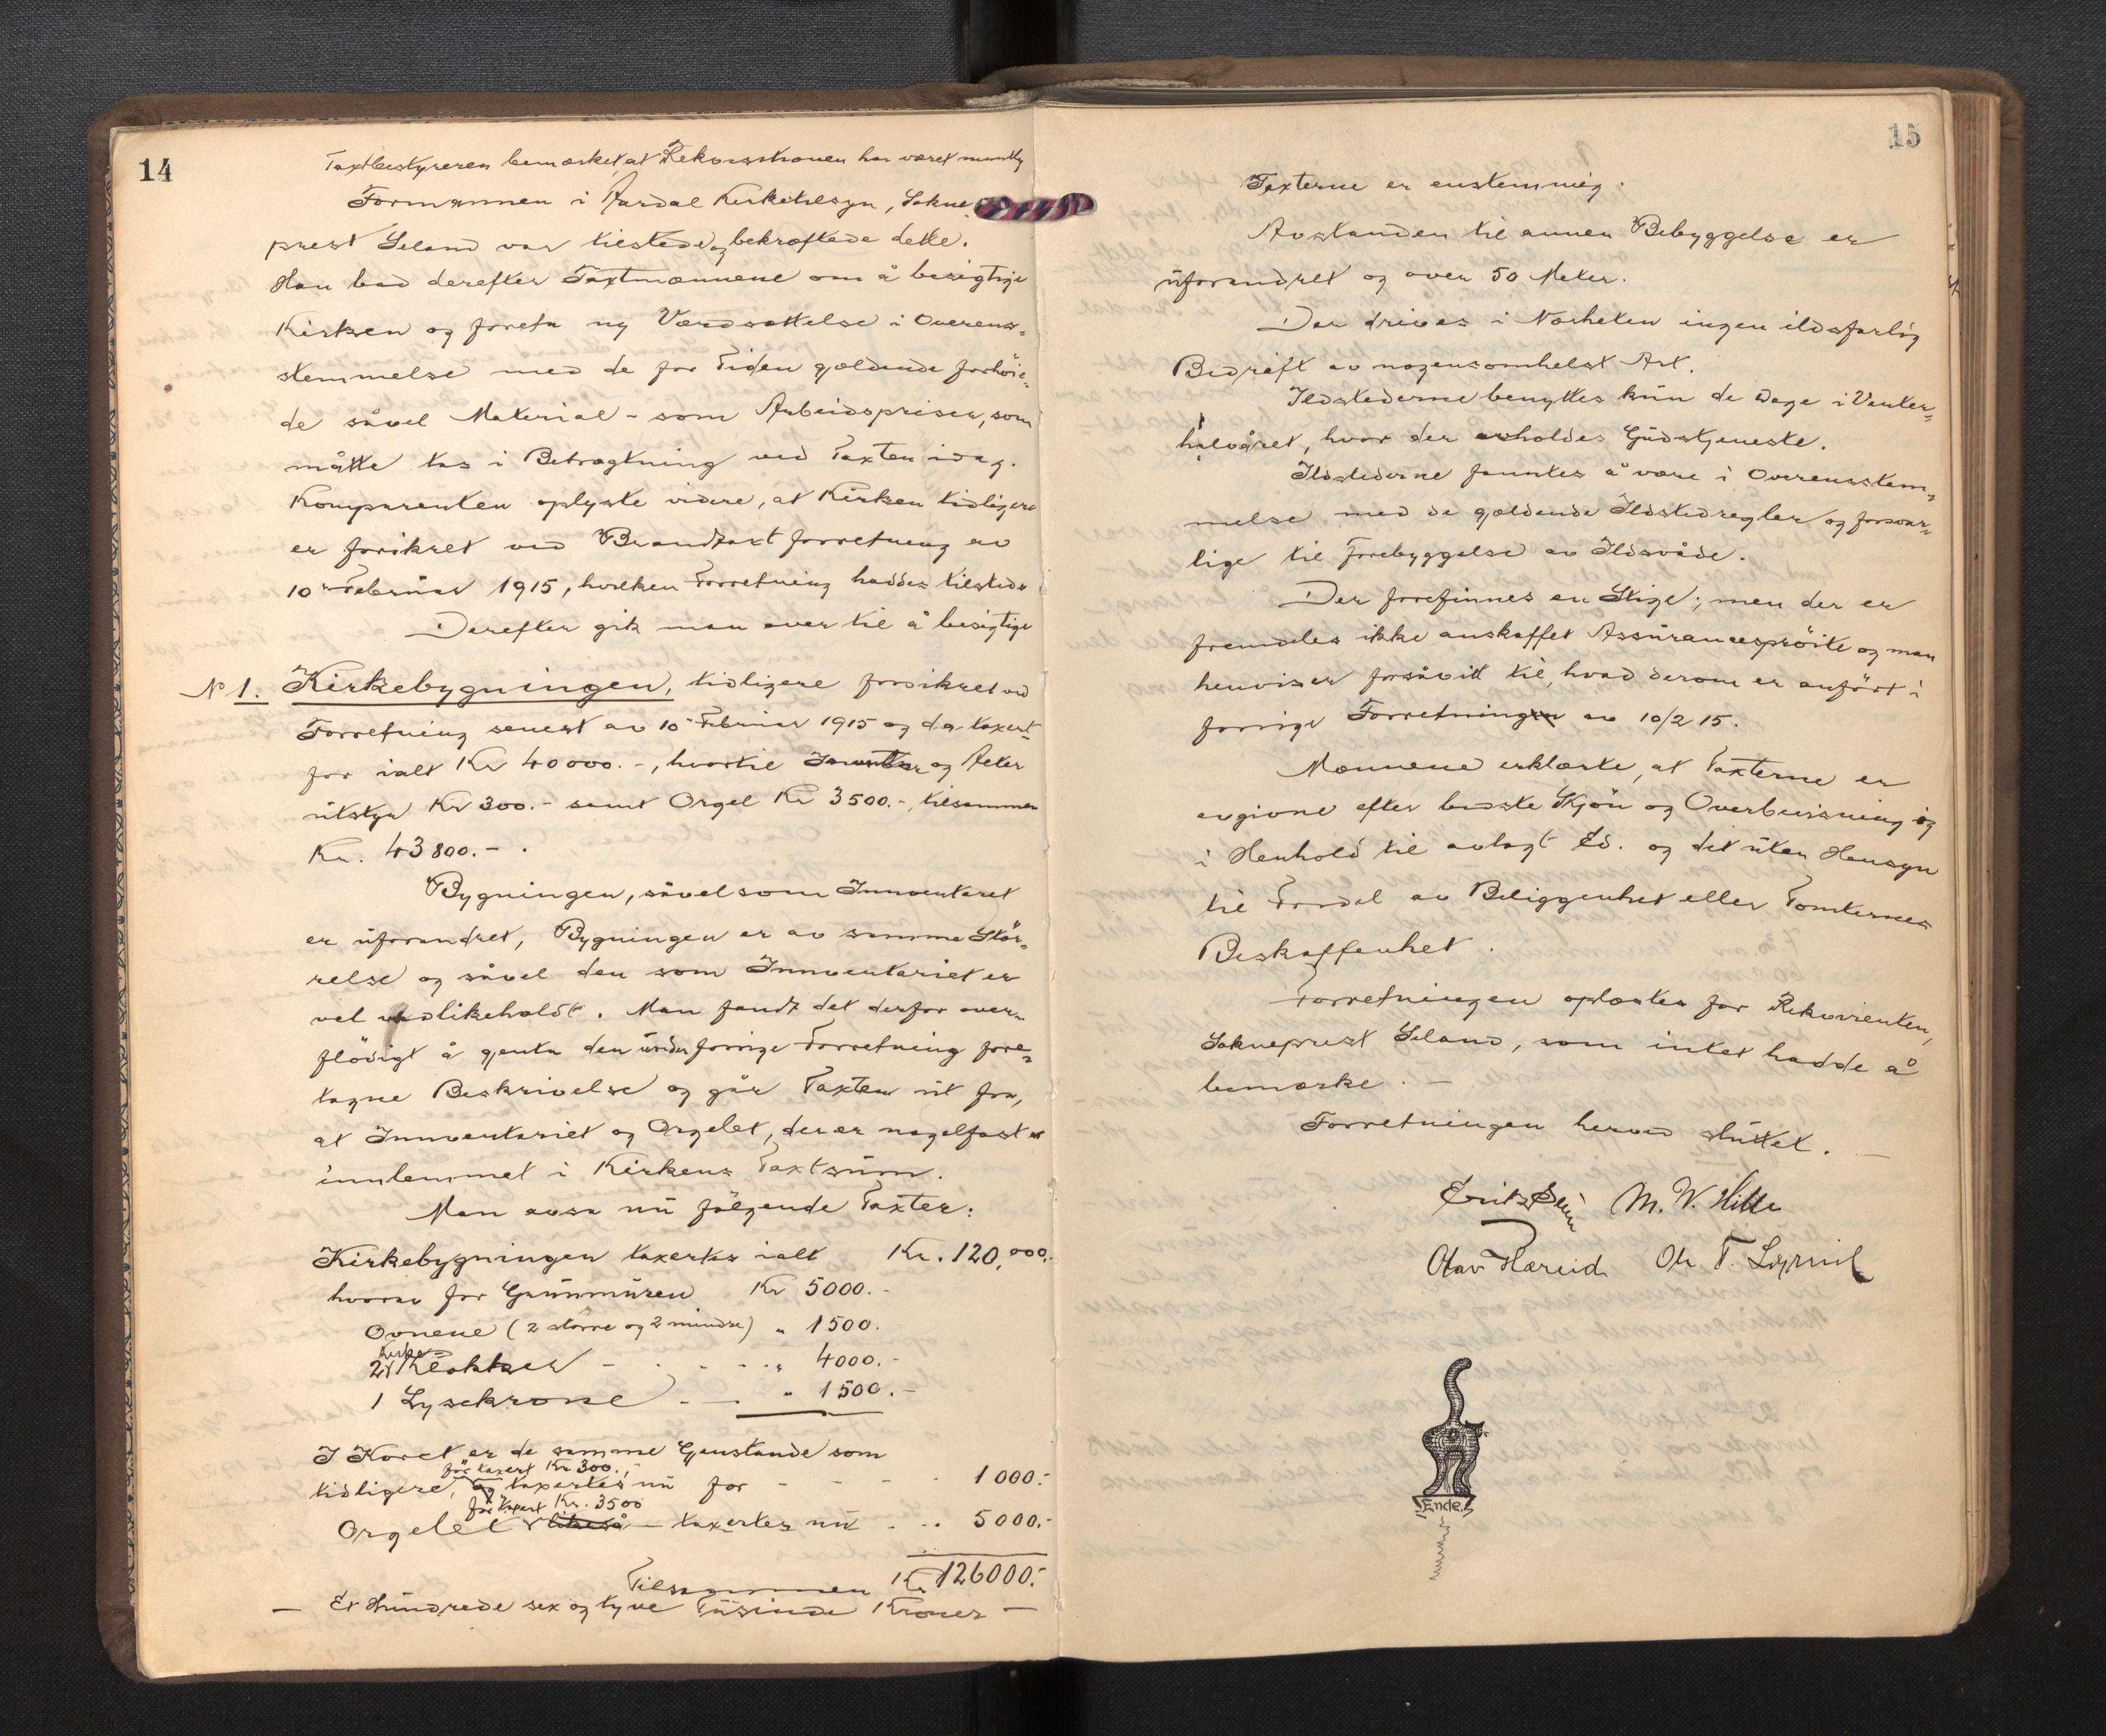 14
Taxtbestyreren bemærket, at Rekvisitionen har været muntlig
Formannen i Aardal Kirketilsyn, Sokne-
prest Seland var tilstede og bekræftede dette.
Han bad derefter Taxtmænnene om å besigtige
Kirken og foreta ny Værdsættelse i Overens-
stemmelse med de for Tiden gjældende forhöie-
de såvel Material- som Arbeidspriser, som
måtte tas i Betragtning ved Taxten idag.
Komparenten oplyste videre, at Kirken tidligere
er forsikret ved Brandtaxtforretning av
10de Februar 1915, hvilken Forretning haddes tilstede
Derefter gik man over til å besigtige
No 1. Kirkebygningen, tidligere forsikret ved
Forretning senest av 10de Februar 1915 og da taxert
for ialt Kr 40000.-, hvortil Inventar og Alter
utstyr Kr 300.- samt Orgel Kr 3500.-, tilsammen
Kr. 43800.-.
Bygningen, såvelsom Innventaret
er uforandret, Bygningen er av samme Stör-
relse og såvel den som Innventariet er
vel vedlikeholdt. Man fandt det derfor over-
flödigt å gjenta den under forrige Forretning fore-
tagne Beskrivelse og går Taxten ut fra,
at Innventariet og Orgelet, der er nagelfast er
innlemmet i Kirkens Taxtsum.
Man avsa nu fölgende Taxter:
Kirkebygningen taxertes ialt Kr. 120,000.-
hvorav for Grunnmuren Kr 5000.-
Ovnene (2 större og 2 mindre) " 1500.
2 Kirke-Klokker - - - - " 4000.-
1 Lysekrone - - " 1500.-
I Koret er de samme Gjenstande som
för taxert Kr 300.-
tidligere, og taxertes nu for - - - 1000.-
för taxert Kr. 3500
Orgelet likeså - taxertes nu - .. 5000.-
Tilsammen Kr 126000.-
- Et Hundrede sex og tyve Tusinde Kroner -
15
Taxterne er enstemmig.
Avstanden til annen Bebyggelse er
uforandret og over 50 Meter.
Der drives i Nærheten ingen ildsfarlig
Bedrift av nogensomhelst Art.
Ildstederne benyttes kun de Dage i Vinter-
halvåret, hvor der avholdes Gudstjeneste.
Ildstederne fanntes å være i Overensstem-
melse med de gjældende Ildstedregler og forsvar-
lige til Forebyggelse av Ildsvåde.
Der forefinnes en Stige; men der er
fremdeles ikke anskaffet Assurancespröite og man
henviser forsåvitt til, hvad derom er anfört i
forrige Forretning av 10/2 15.
Mænnene erklærte, at Taxterne er
avgivne efter bedste Skjön og Overbevisning og
i Henhold til avlagt Ed. og det uten Hensyn
til Fordel av Beliggenhet eller Tomternes
Beskaffenhet.
Forretningen oplæstes for Rekvirenten,
Sokneprest Seland, som intet hadde å
bemærke. -
Forretningen herved sluttet. -
M. V. Hille
Olav Hæreid
Ende!